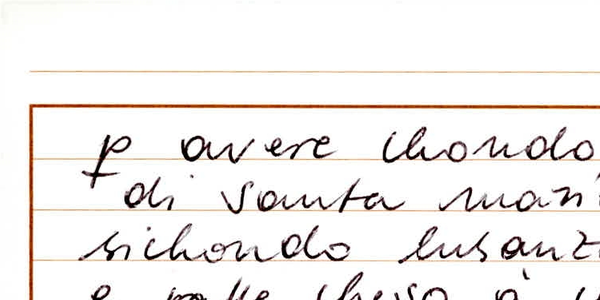 ꝑ avere chondo
di santa mari
sichondo lusanz
e